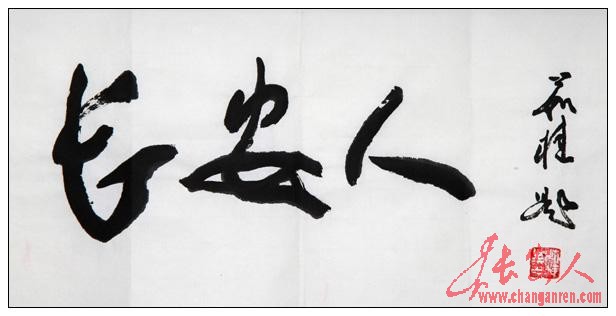 长安人
长安人
www.changanren.com